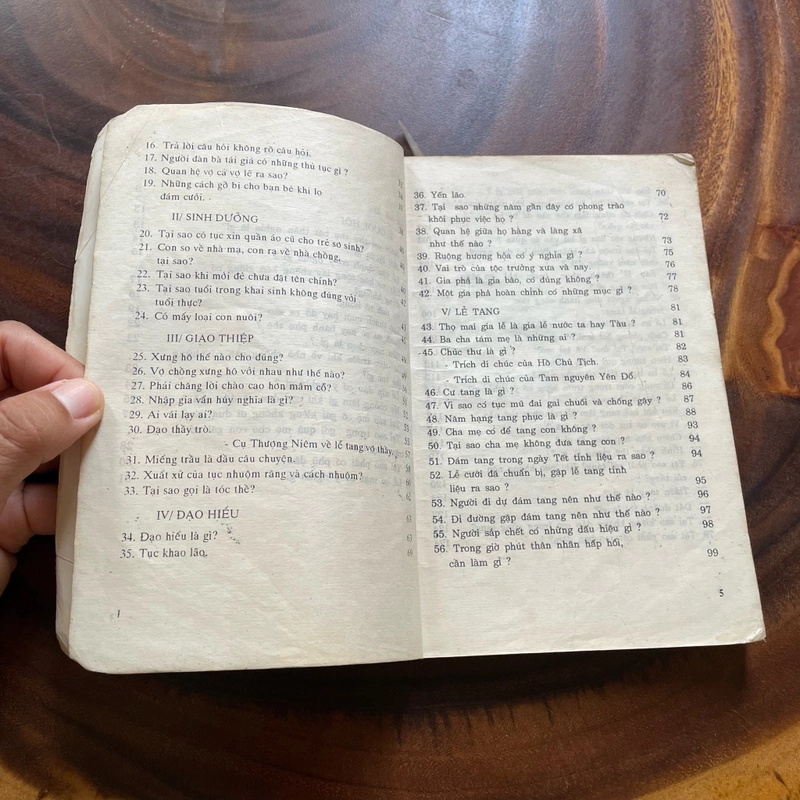 16. Trả lời câu hỏi không rõ câu hỏi.
17. Người đàn bà tái giá có những thủ tục gì ?
18. Quan hệ vợ cả vợ lẽ ra sao?
19. Những cách gỡ bí cho bạn bè khi lo
đám cưới.
II/ SINH DƯỠNG
20. Tại sao có tục xin quần áo cũ cho trẻ sơ sinh?
21. Con so về nhà mạ, con rạ về nhà chồng,
tại sao?
22. Tại sao khi mới đẻ chưa đặt tên chính?
23. Tại sao tuổi trong khai sinh không đúng với
tuổi thực?
24. Có mấy loại con nuôi?
III/ GIAO THIỆP
25. Xưng hô thế nào cho đúng?
26. Vợ chồng xưng hô với nhau như thế nào?
27. Phải chăng lời chào cao hơn mâm cỗ?
28. Nhập gia vấn húy nghĩa là gì?
29. Ai vái lạy ai?
30. Đạo thầy trò.
- Cụ Thượng Niêm về lễ tang vợ thầy.
31. Miếng trầu là đầu câu chuyện. 57
32. Xuất xứ của tục nhuộm răng và cách nhuộm? 60
33. Tại sao gọi là tóc thề? 62
IV/ ĐẠO HIẾU
34. Đạo hiếu là gì? 63
35. Tục khao lão. 69
1
36. Yến lão. 70
37. Tại sao những năm gần đây có phong trào
khôi phục việc họ ? 72
38. Quan hệ giữa họ hàng và làng xã
như thế nào ? 73
39. Ruộng hương hỏa có ý nghĩa gì ? 75
40. Vai trò của tộc trưởng xưa và nay. 76
41. Gia phả là gia bảo, có đúng không ? 77
42. Một gia phả hoàn chỉnh có những mục gì ? 78
V/ LỄ TANG 81
43. Thọ mai gia lễ là gia lễ nước ta hay Tàu ? 81
44. Ba cha tám mẹ là những ai ? 81
45. Chúc thư là gì ? 82
- Trích di chúc của Hồ Chủ Tịch. 83
- Trích di chúc của Tam nguyên Yên Đổ. 84
46. Cư tang là gì ? 86
47. Vì sao có tục mũ đai gai chuối và chống gậy ? 87
48. Năm hạng tang phục là gì ? 88
49. Cha mẹ có để tang con không ? 93
50. Tại sao cha mẹ không đưa tang con ? 94
51. Đám tang trong ngày Tết tính liệu ra sao ? 94
52. Lễ cưới đã chuẩn bị, gặp lễ tang tính
liệu ra sao ? 95
53. Người đi dự đám tang nên như thế nào ? 96
54. Đi đường gặp đám tang nên như thế nào ? 97
55. Người sắp chết có những dấu hiệu gì ? 98
56. Trong giờ phút thân nhân hấp hối,
cần làm gì ? 99
5